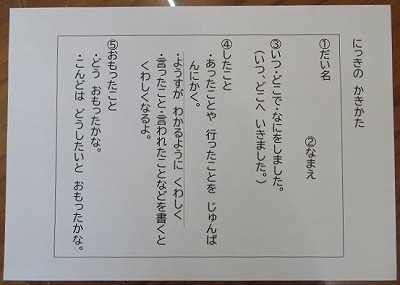 にっきの かきかた
①だい名
②なまえ
③いつ・どこで・なにをしました。
(いつ、どこへ いきました。)
④したこと
・あったことや 行ったことを じゅんば
んにかく。
・ようすが わかるように くわしく
・言ったこと・言われたことなどを書くと
くわしくなるよ。
⑤おもったこと
・どう おもったかな。
・こんどは どうしたいと おもったかな。